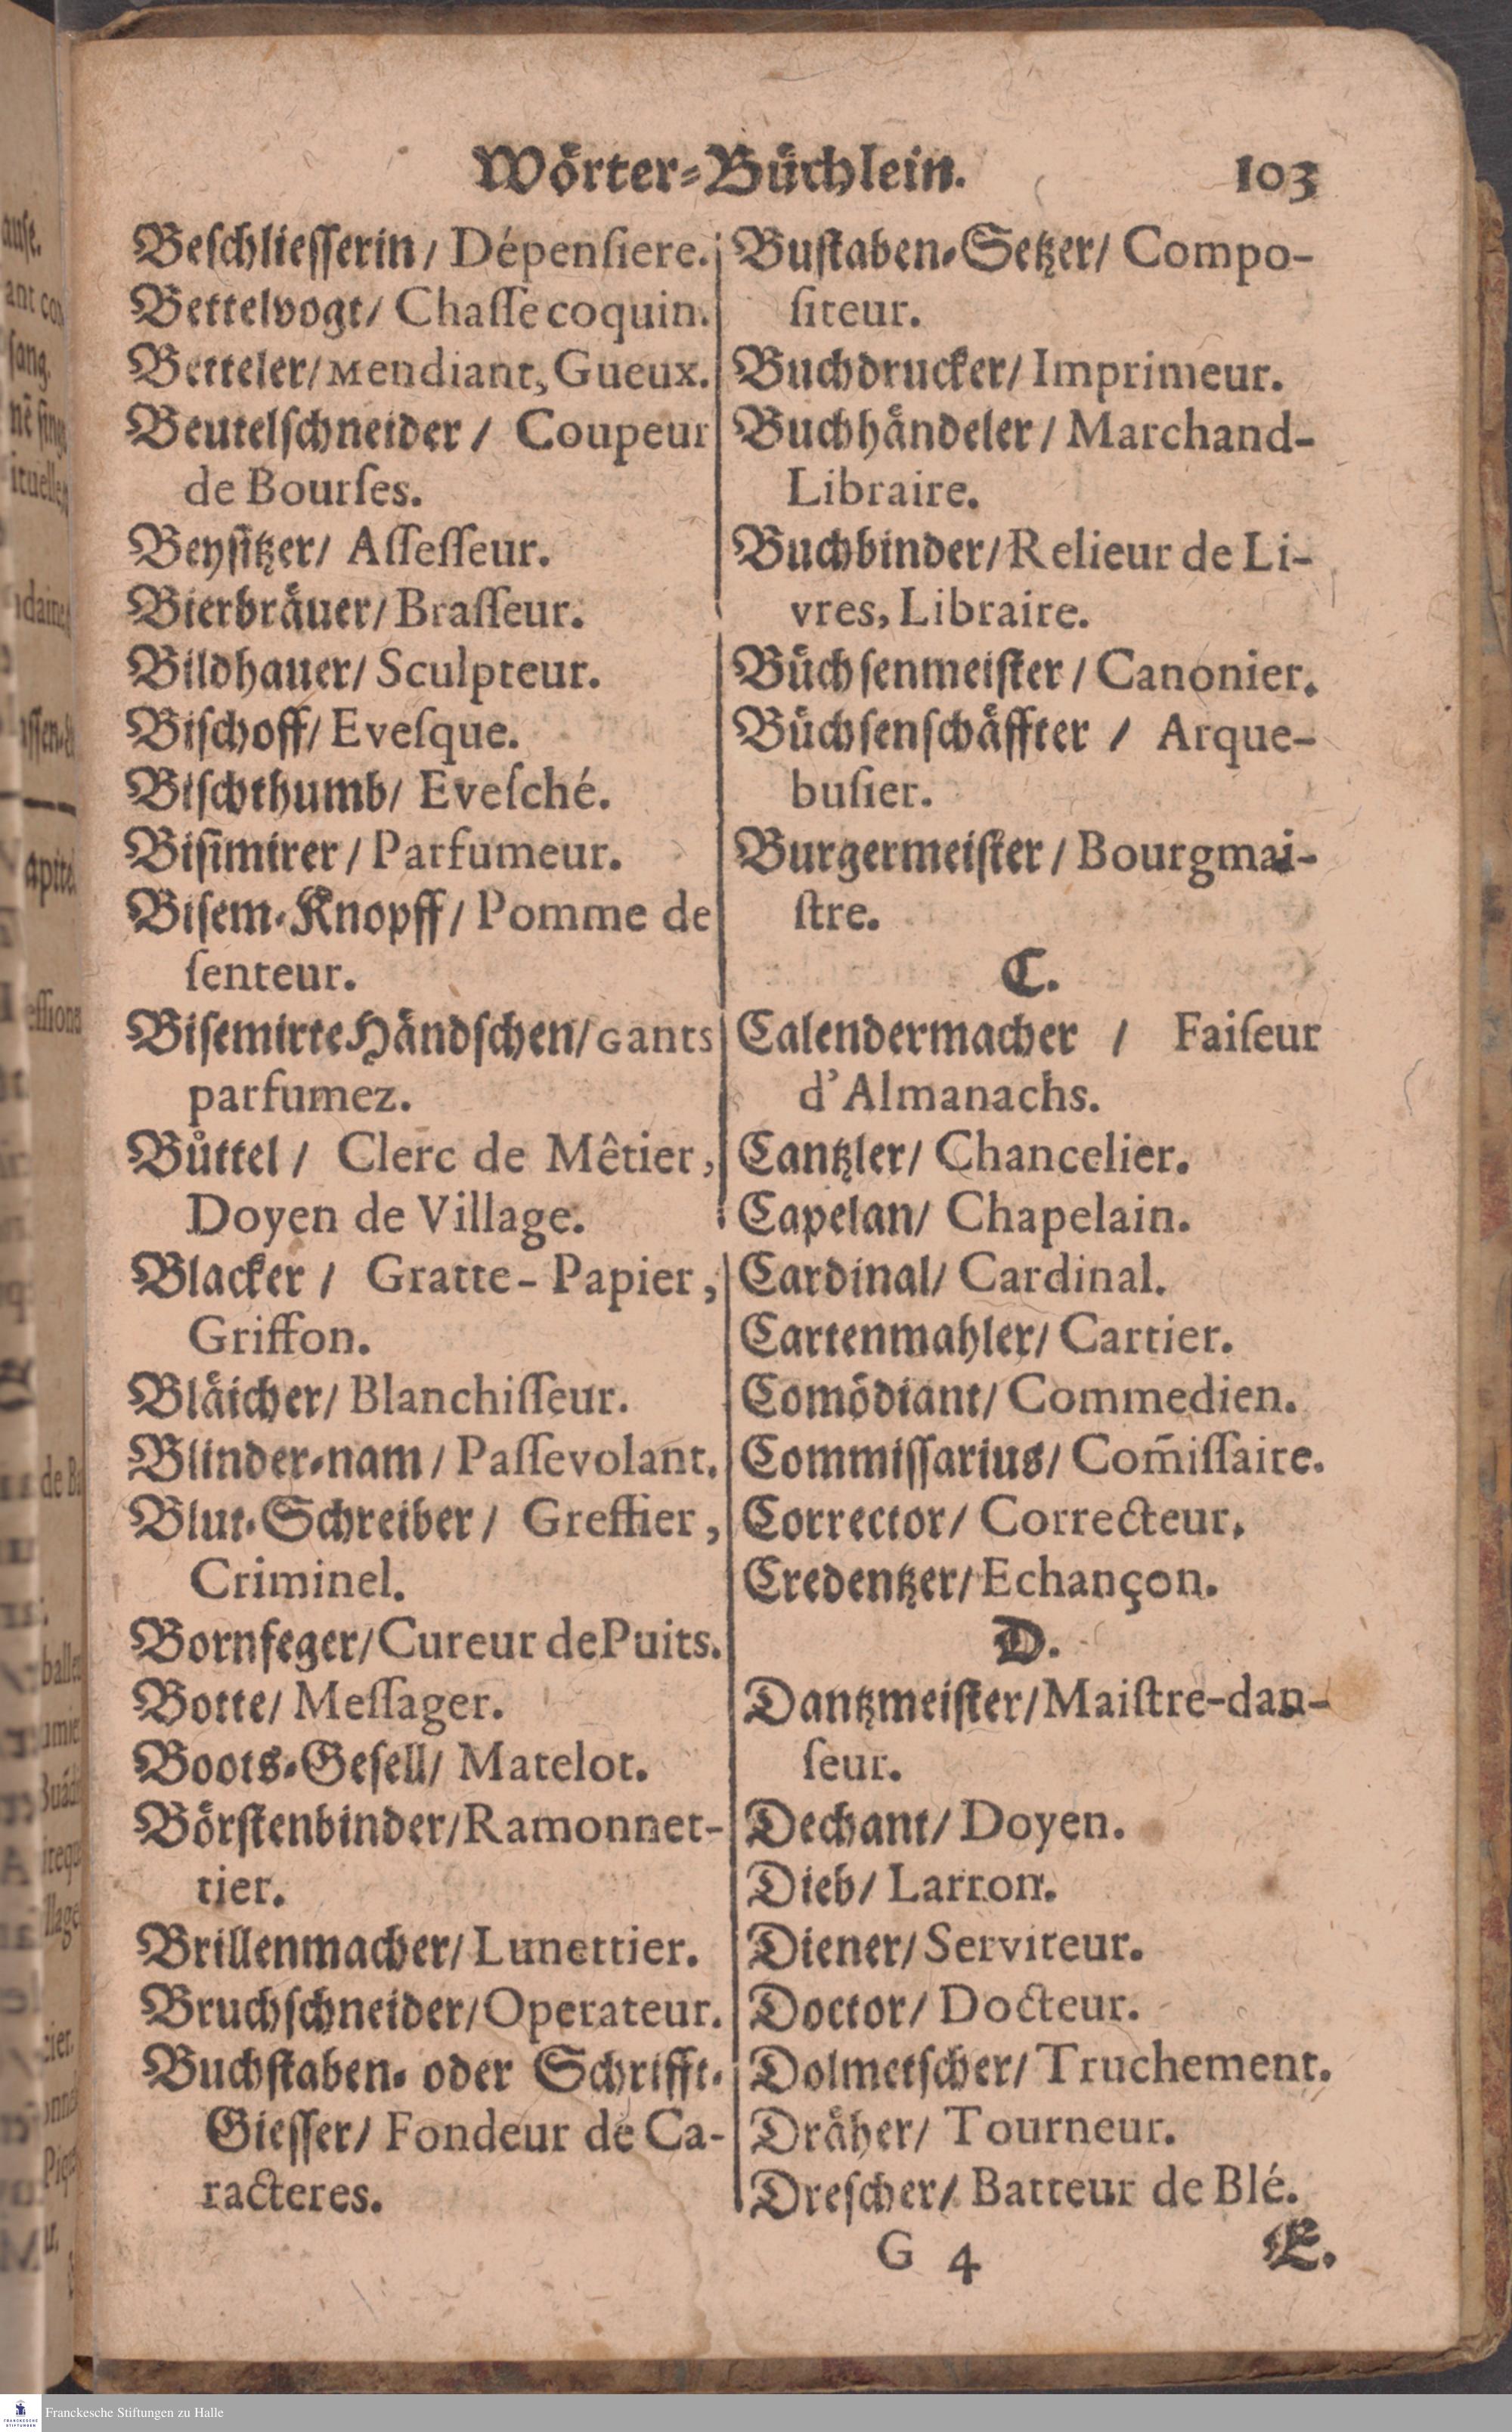 Wörter-Büchlein. 103
Beſchlieſſerin / Dépenſiere.
Bettelvogt / Chaſſecoquin.
Betteler / Mendiant, Gueux.
Beutelſchneider / Coupeur
de Bourſes.
Beyſitzer / Aſſeſſeur.
Bierbräuer / Braſſeur.
Bildhauer / Sculpteur.
Biſchoff / Eveſque.
Biſchthumb / Eveſché.
Biſimirer / Parfumeur.
Biſem-Knopff / Pomme de
ſenteur.
Biſemirte Händſchen / Gants
parfumez.
Bůttel / Clerc de Mêtier,
Doyen de Village.
Blacker / Gratte-Papier,
Griffon.
Bläicher / Blanchiſſeur.
Blinder-nam / Paſſevolant.
Blut-Schreiber / Greffier,
Criminel.
Bornfeger / Cureur de Puits.
Botte / Meſſager.
Boots-Geſell / Matelot.
Börſtenbinder / Ramonnet-
tier.
Brillenmacher / Lunettier.
Bruchſchneider / Operateur.
Buchſtaben- oder Schrifft-
Gieſſer / Fondeur de Ca-
racteres.
Buſtaben-Setzer / Compo-
ſiteur.
Buchdrucker / Imprimeur.
Buchhändeler / Marchand-
Libraire.
Buchbinder / Relieur de Li-
vres, Libraire.
Büchſenmeiſter / Canonier.
Büchſenſchäffter / Arque-
buſier.
Burgermeiſter / Bourgmai-
ſtre.
C.
Calendermacher / Faiſeur
d'Almanachs.
Cantzler / Chancelier.
Capelan / Chapelain.
Cardinal / Cardinal.
Cartenmahler / Cartier.
Comödiant / Commedien.
Commiſſarius / Com̃iſſaire.
Corrector / Correcteur.
Credentzer / Echançon.
D.
Dantzmeiſter / Maiſtre-dan-
ſeur.
Dechant / Doyen.
Dieb / Larron.
Diener / Serviteur.
Doctor / Docteur.
Dolmetſcher / Truchement.
Dräher / Tourneur.
Dreſcher / Batteur de Blé.
G 4 E.
Franckesche Stiftungen zu Halle